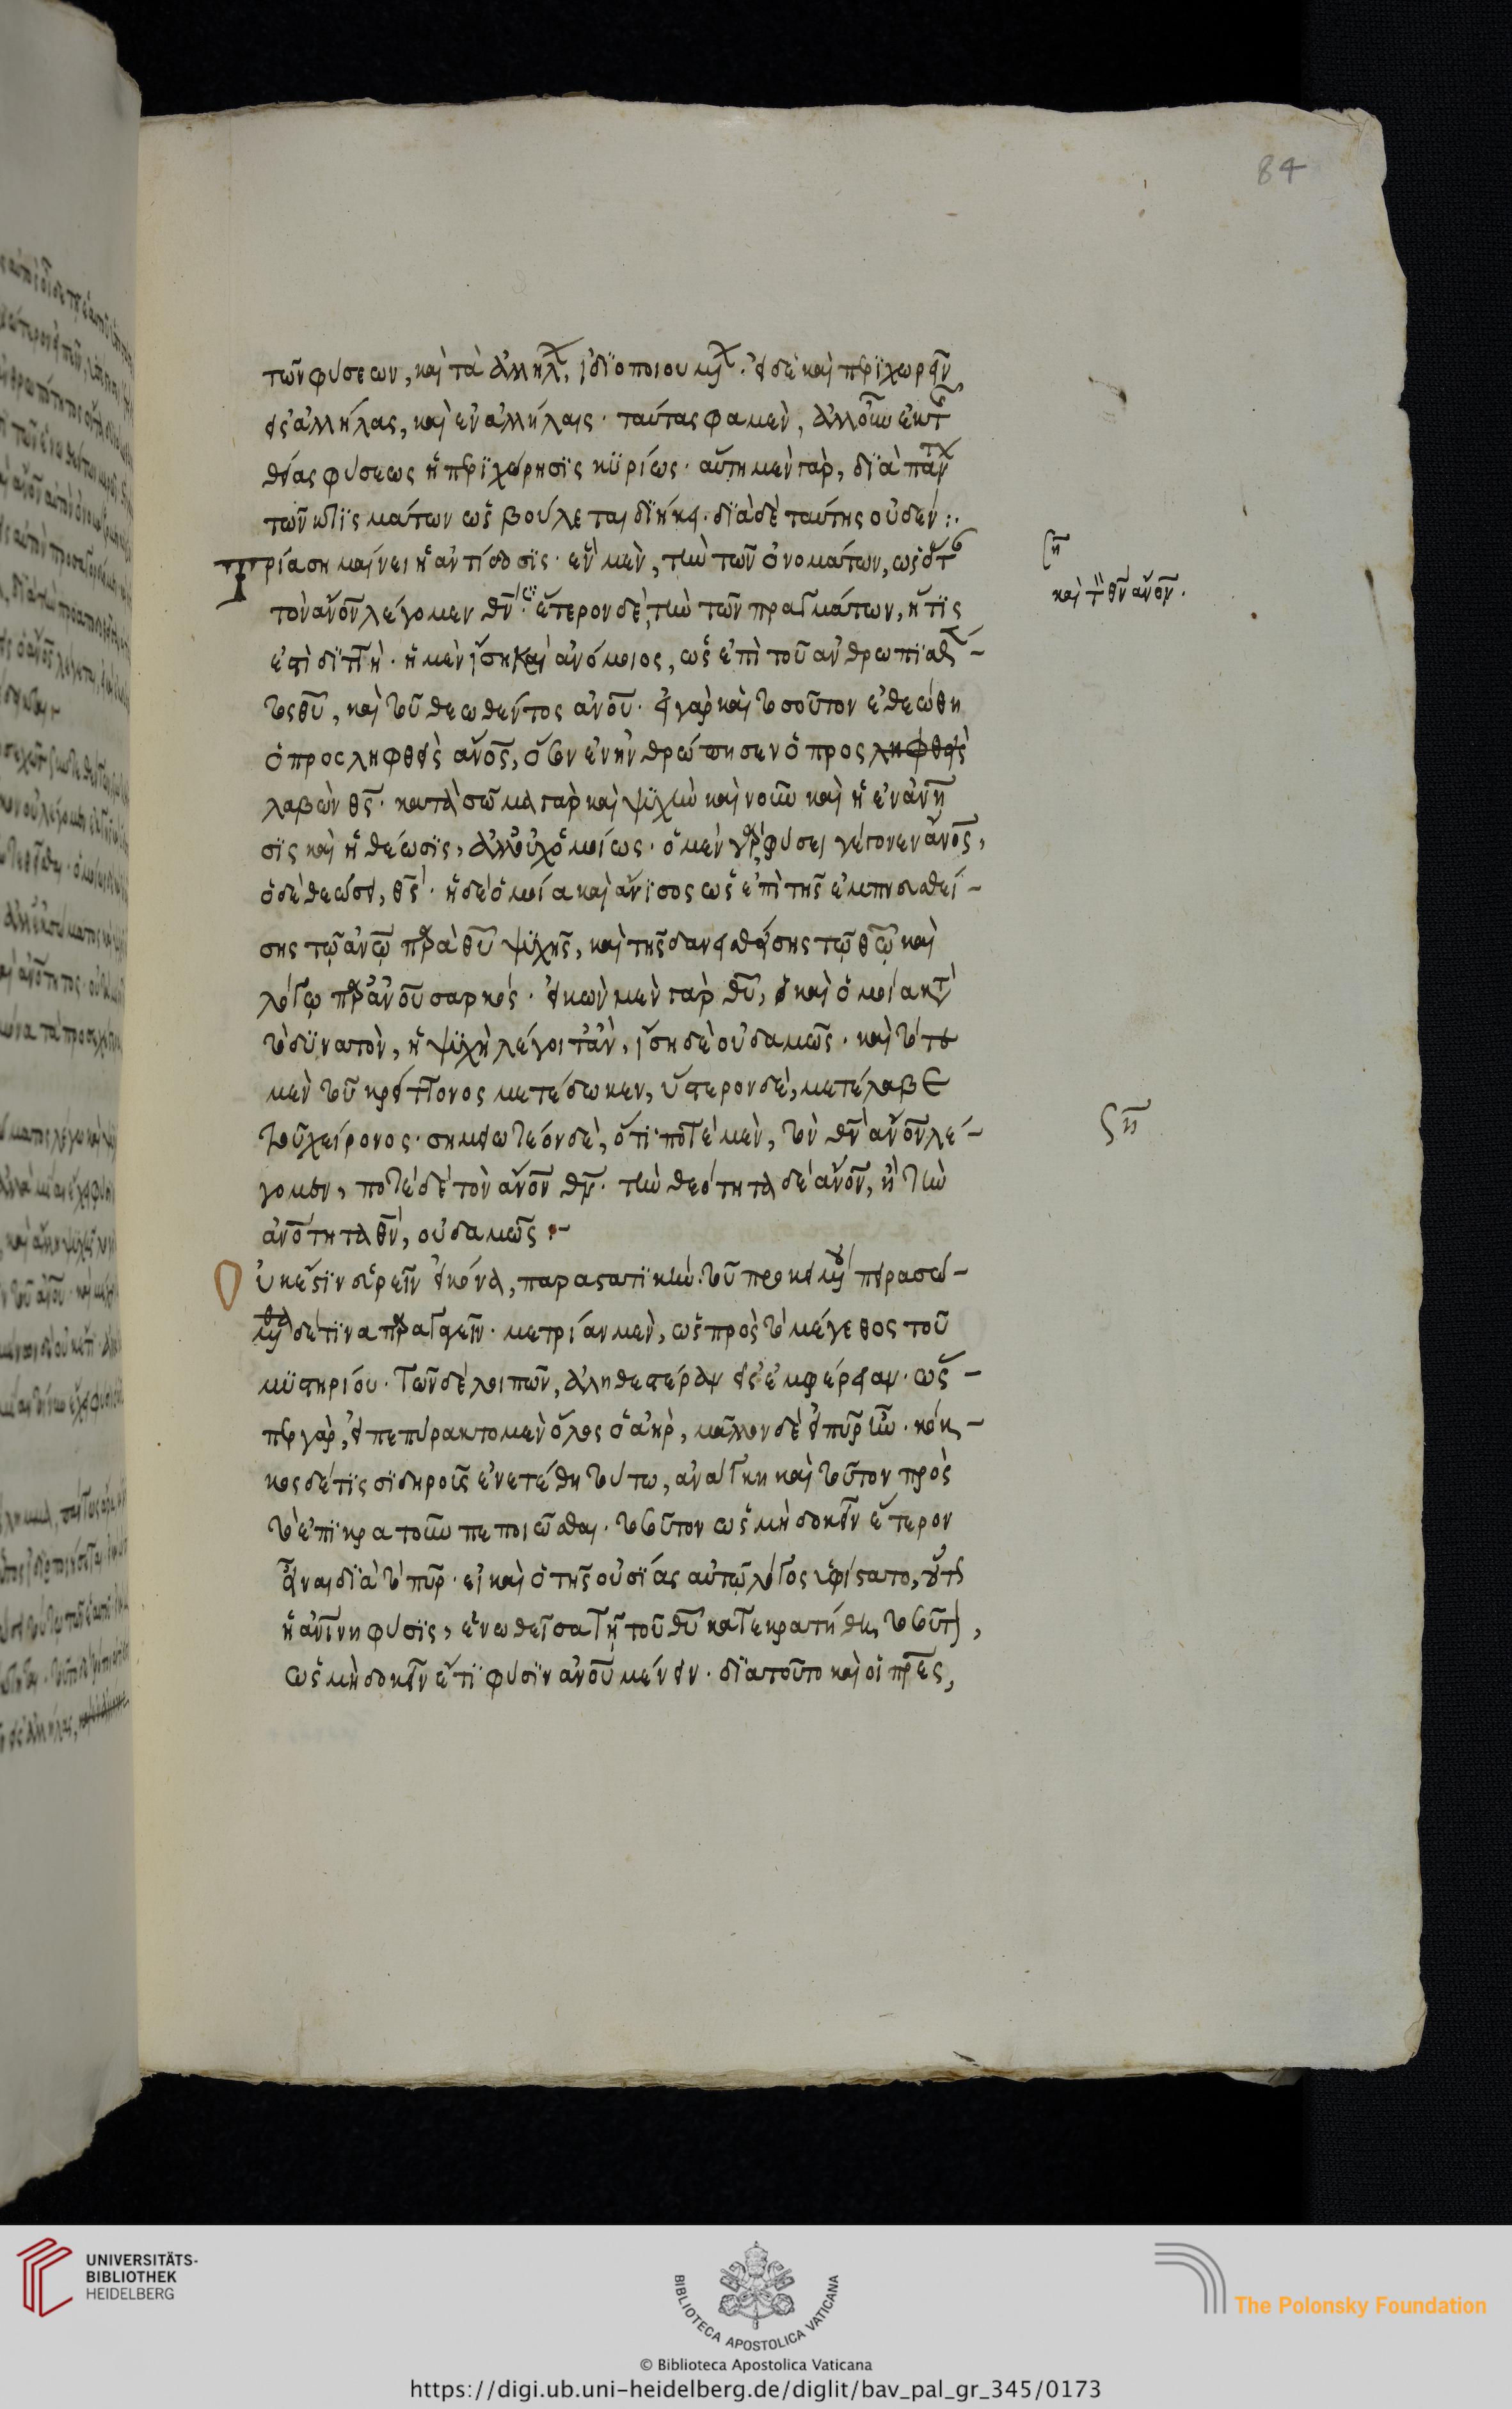 84
τῶν φύσεων, καὶ τὰ ἀλλήλ ἰδιοποιουμ. εἰ δὲ καὶ περιχωρεῖν
εἰς ἀλλήλας, καὶ ἐν ἀλλήλαις ταύτας φαμὲν, ἀλλ' οὖν ἐκ τ
θείας φύσεως ἡ περιχώρησις κυρίως· αὕτη μὲν γὰρ, διὰ πάντ
τῶν κτισμάτων ὡς βούλεται διήκει· διὰ δὲ ταύτης οὐδέν:.
Τρία σημαίνει ἡ ἀντίδοσις· ἓν μὲν, τὴν τῶν ὀνομάτων, ὡς ὅτ
τὸν ἄνον λέγομεν θν· ἕτερον δὲ, τὴν τῶν πραγμάτων, ἥτις
ἐστὶ διττὴ· ἡ μὲν ἴση καὶ ἀνόμοιος, ὡς ἐπὶ τοῦ ἀνθρωπισθέν-
τος θυ, καὶ τοῦ θεωθέντος ανου· εἰ γὰρ καὶ τοσοῦτον ἐθεώθη
ὁ προσληφθεὶς ανος, ὅσον ἐνηνθρώπησεν ὁ προσληφθεὶς
λαβὼν θς· κατὰ σῶμα γὰρ καὶ ψυχὴν καὶ νοῦν καὶ ἡ ἐνανη
σις καὶ ἡ θέωσις, ἀλλ' οὐχ ὁμοίως· ὁ μὲν γὰρ φύσει γέγονεν ανος,
ὁ δὲ θεώσει, θς· ἡ δὲ ὁμοία καὶ ἄνισος ὡς ἐπὶ τῆς ἐμπνευσθεί-
σης τῷ ανω παρὰ θυ ψυχῆς, καὶ τῆς δανεισθείσης τῷ θω καὶ
λόγῳ παρ' ανου σαρκός· εἰκὼν μὲν γὰρ θυ, εἰ καὶ ὁμοία κατ
τὸ δυνατὸν, ἡ ψυχὴ λέγοιτ' ἂν, ἴση δὲ οὐδαμῶς· καὶ τότε
μὲν τοῦ κρείττονος μετέδωκεν, ὕστερον δὲ, μετέλαβε
τοῦ χείρονος· σημειωτέον δὲ, ὅτι ποτὲ μὲν, τὸν θν ανον λέ-
γομεν, ποτὲ δὲ τὸν ανον θν· τὴν θεότητα δὲ ανον, ἢ τὴν
ανοτητα θν, οὐδαμῶς:-
Οὐκ ἔστιν εὑρεῖν εἰκόνα, παραστατικὴν τοῦ προκειμου· πειρασώ-
μεθα δέ τινα παραγαγεῖν· μετρίαν μὲν, ὡς πρὸς τὸ μέγεθος τοῦ
μυστηρίου· τῶν δὲ λοιπῶν, ἀληθεστέραν εἰς ἐμφέρειαν· ὥσ-
περ γὰρ, εἰ πεπύρακτο μὲν ὅλος ὁ ἀὴρ, μᾶλλον δὲ εἰ πῦρ ἦν· κόκ-
κος δέ τις σιδηροῦς ἐνετέθη τούτω, ἀνάγκη καὶ τοῦτον πρὸς
τὸ ἐπικρατοῦν πεποιῶσθαι· τοσοῦτον ὡς μὴ δοκεῖν ἕτερον
εἶναι διὰ τὸ πῦρ· εἰ καὶ ὁ τῆς οὐσίας αὐτῷ λόγος ὑφίστατο, οὕτω
ἡ ανινη φύσις, ἑνωθεῖσα τῇ τοῦ θυ κατεκρατήθη τοσοῦτ,
ὡς μὴ δοκεῖν ἔτι φύσιν ανου μένειν· διατοῦτο καὶ οἱ πρες,
ση
καὶ τ θν ανον.
ση
UNIVERSITÄTS-
BIBLIOTHEK
HEIDELBERG
BIBLIOTECA APOSTOLICA VATICANA
The Polonsky Foundation
© Biblioteca Apostolica Vaticana
https://digi.ub.uni-heidelberg.de/diglit/bav_pal_gr_345/0173